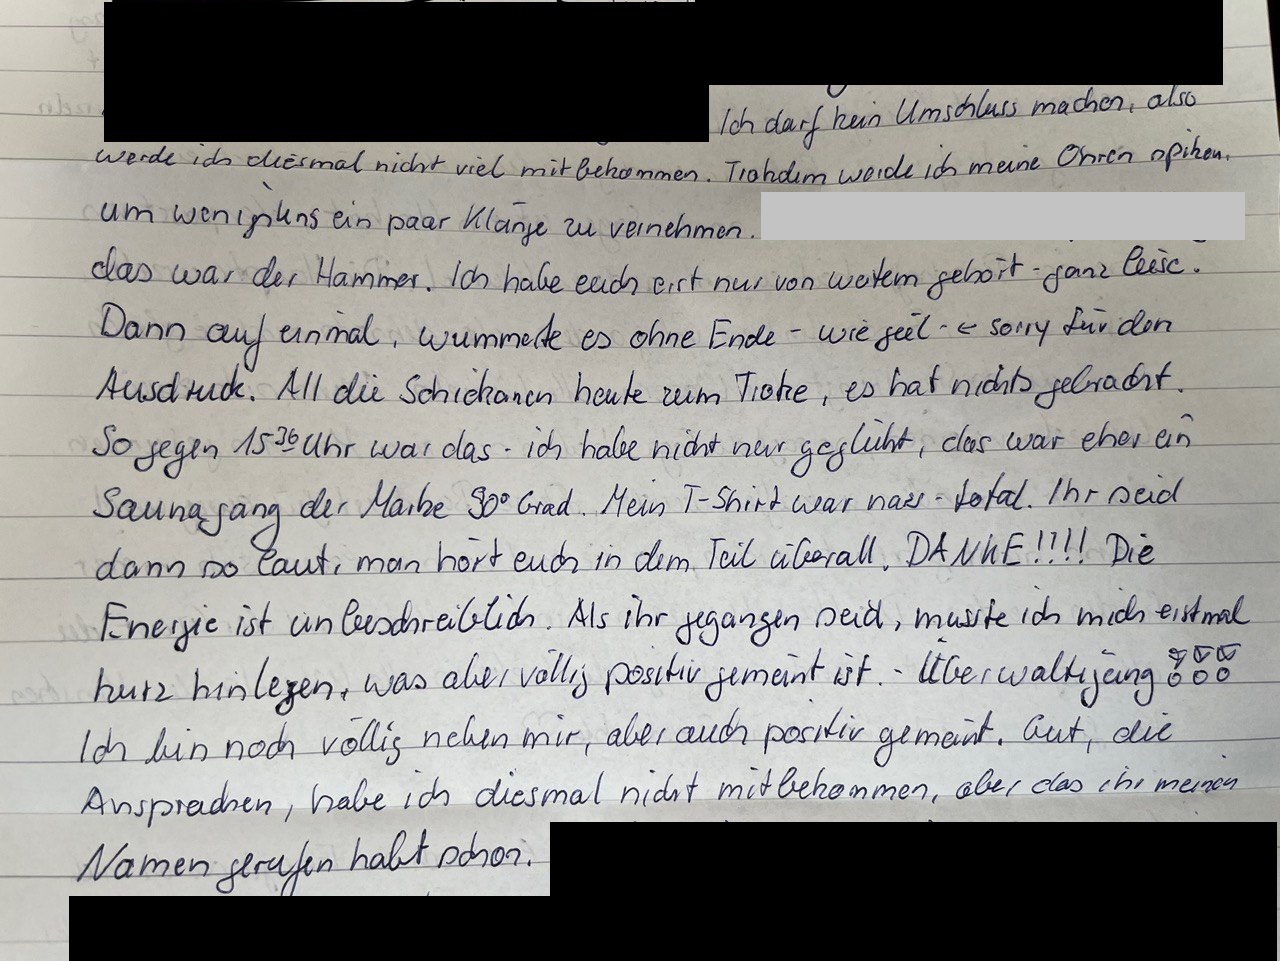 Ich darf kein Umschluss machen, also
werde ich diesmal nicht viel mitbekommen. Trotzdem werde ich meine Ohren spitzen,
um wenigstens ein paar Klänge zu vernehmen.
das war der Hammer. Ich habe euch erst nur von weitem gehört - ganz leise.
Dann auf einmal, wummerte es ohne Ende - wie geil - ← sorry für den
Ausdruck. All die Schickanen heute zum Trotze, es hat nichts gebracht.
So gegen 15³⁰ Uhr war das - ich habe nicht nur geglüht, das war eher ein
Saunagang der Marke 90° Grad. Mein T-Shirt war nass - total. Ihr seid
dann so laut, man hört euch in dem Teil überall. DANKE!!!! Die
Energie ist unbeschreiblich. Als ihr gegangen seid, musste ich mich erstmal
kurz hinlegen, was aber völlig positiv gemeint ist. - Überwältigung
Ich bin noch völlig neben mir, aber auch positiv gemeint. Gut, die
Ansprachen, habe ich diesmal nicht mitbekommen, aber das ihr meinen
Namen gerufen habt schon.